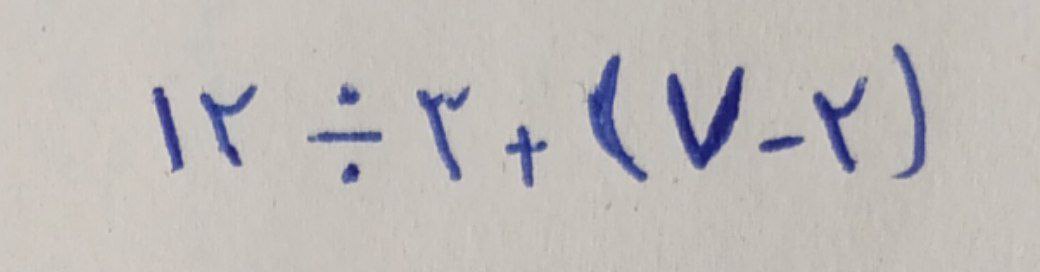 ۱۲ ÷ ۳ + (۷ - ۲)